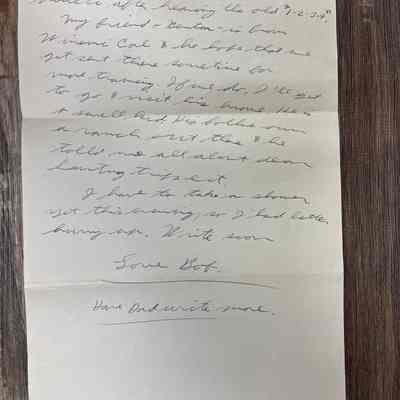 after hearing the old "1-2-3-4"
My friend - Benton - is from
Cal & he hopes that we
get sent there sometime for
more training. If we do, I'll get
to go & visit his home. He is
a swell kid. His folks own
a ranch out there & he
tells me all about deer
hunting trips etc.
I have to take a shower
yet this evening, so I had better
hurry up. Write soon
Love Bob.
Have Dad write more.